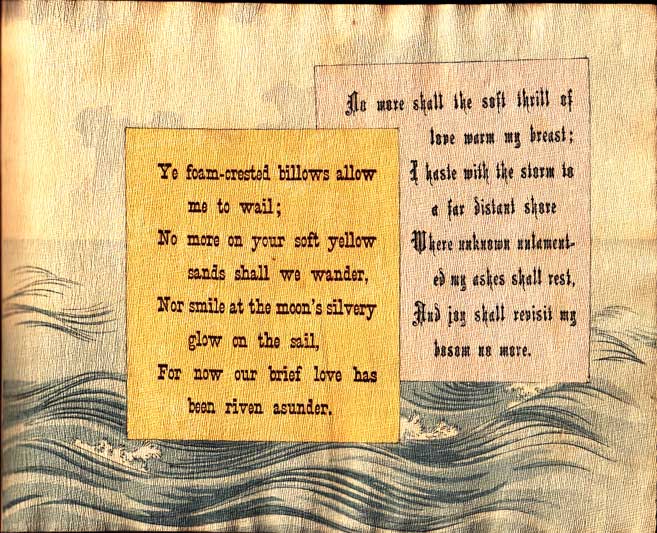 Ye foam-crested billows allow
me to wail;
No more on your soft yellow
sands shall we wander,
Nor smile at the moon's silvery
glow on the sail,
For now our brief love has
been riven asunder.
No more shall the soft thrill of
love warm my breast;
I haste with the storm to
a far distant shore
Where unknown unlament-
ed my ashes shall rest,
And joy shall revisit my
bosom no more.